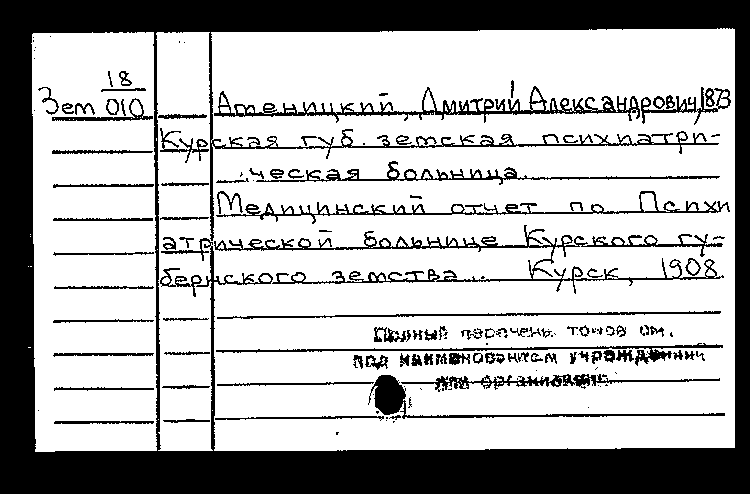 18
Зем 010
Атеницкий, Дмитрий Александрович, 1873
Курская губ. земская психиатри-
ческая больница.
Медицинский отчет по Психи
атрической больнице Курского гу-
бернского земства.. Курск, 1908
Полный перечень томов см.
под наименованием учреждении
или организации.